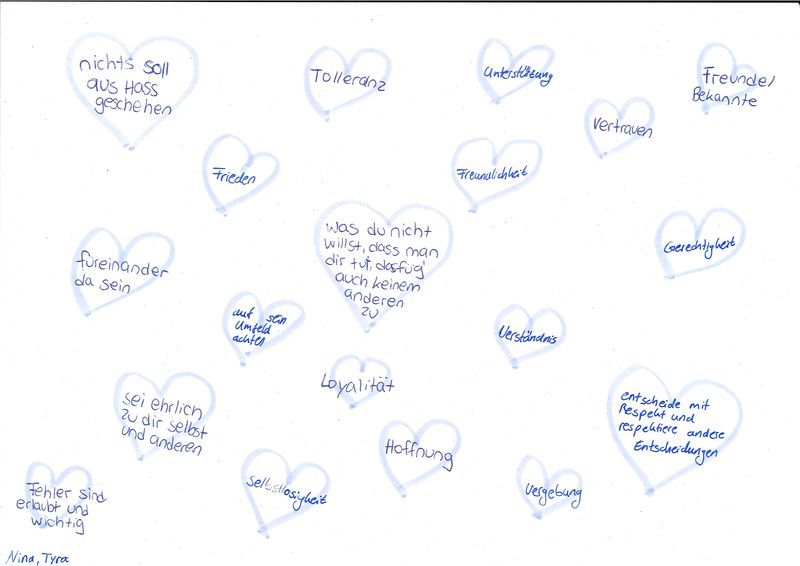 nichts soll
aus Hass
geschehen
Tolleranz
Unterstützung
Freunde/
Bekannte
Vertrauen
Frieden
Freundlichkeit
was du nicht
willst, dass man
dir tut, das füg
auch keinem
anderen
zu
Gerechtigkeit
füreinander
da sein
auf sein
Umfeld
achten
Verständnis
Loyalität
sei ehrlich
zu dir selbst
und anderen
entscheide mit
Respekt und
respektiere andere
Entscheidungen
Hoffnung
Selbstlosigkeit
Vergebung
Fehler sind
erlaubt und
wichtig
Nina, Tyra